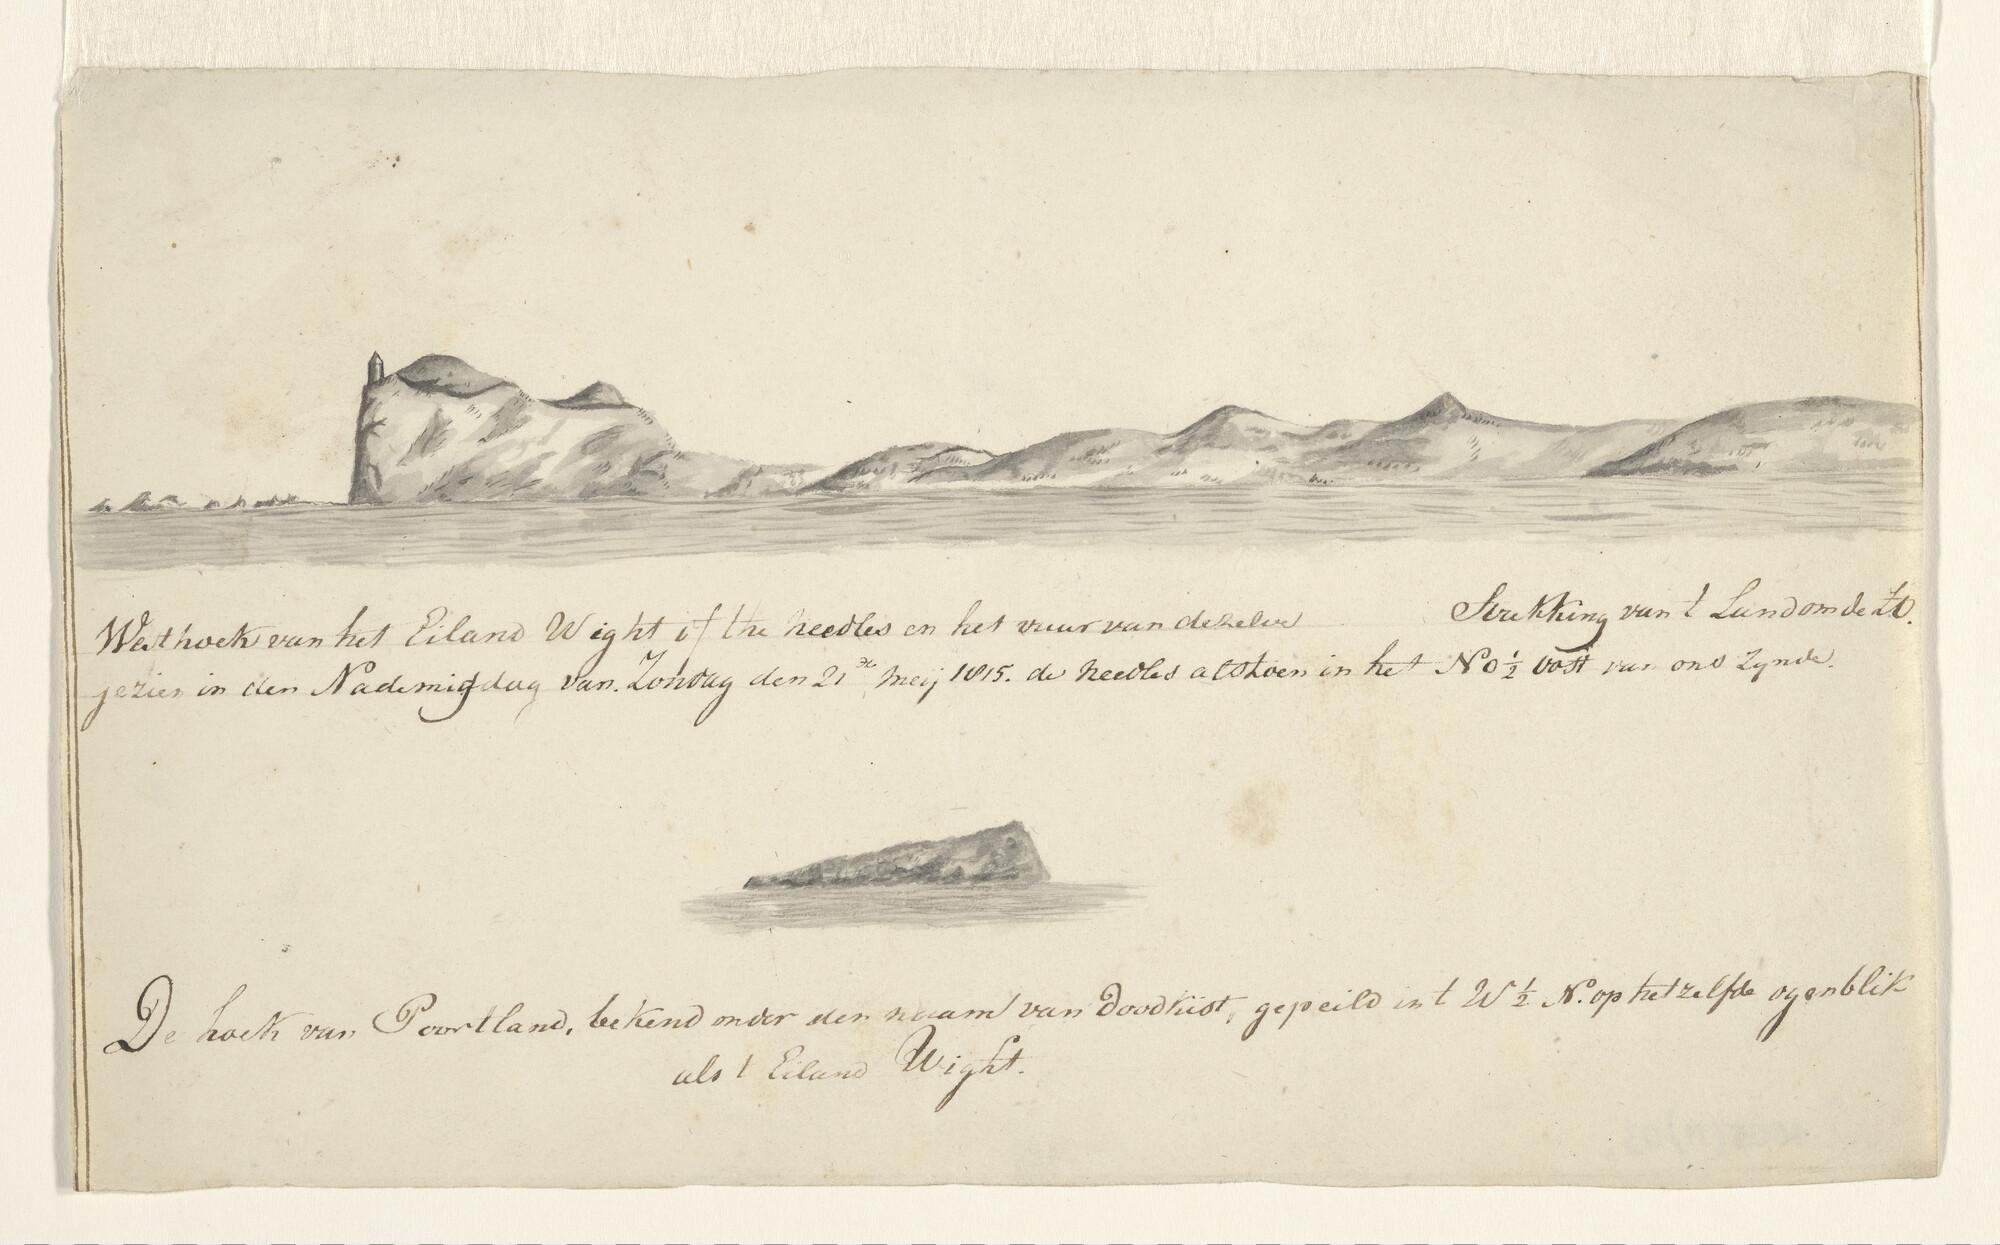 Westhoek van het Eiland Wight of the needles en het vuur van dezelve Strekking van t Land om de
gezien in den Nademigdag van Zondag den 21 meij 1815. de needles alstoen in het NO ½ oost van ons Zynde.
De hoek van Poortland, bekend onder den naam van Doodkist, gepeild in t W ½ N. op hetzelfde ogenblik
als t Eiland Wight.